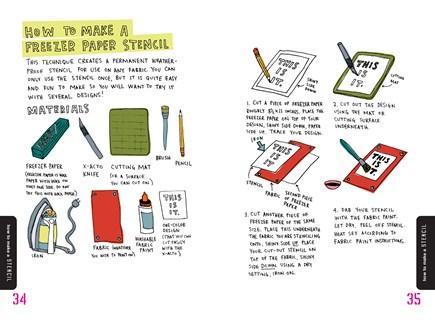 HOW TO MAKE A
FREEZER PAPER STENCIL
THIS TECHNIQUE CREATES A PERMANENT WEATHER-
PROOF STENCIL FOR USE ON ANY FABRIC. YOU CAN
ONLY USE THE STENCIL ONCE, BUT IT IS QUITE EASY
AND FUN TO MAKE SO YOU WILL WANT TO TRY IT
WITH SEVERAL DESIGNS!
MATERIALS
FREEZER PAPER
(FREEZER PAPER IS WAX
PAPER WITH WAX ON
ONLY ONE SIDE. DO NOT
TRY THIS WITH WAX PAPER)
X-ACTO
KNIFE
CUTTING MAT
(OR A SURFACE
YOU CAN CUT ON)
BRUSH
PENCIL
IRON
FABRIC (WHATEVER
YOU WISH TO PRINT ON)
WASHABLE
FABRIC
PAINT
THIS
IS
IT.
ONE-COLOR
DESIGN
(THAT YOU CAN
CUT EASILY
WITH THE
X-ACTO)
how to make a STENCIL
34
THIS
IS
IT.
SHINY
SIDE
DOWN
1. CUT A PIECE OF FREEZER PAPER
ROUGHLY 8½ X 11 INCHES. PLACE THE
FREEZER PAPER ON TOP OF YOUR
DESIGN, SHINY SIDE DOWN, PAPER
SIDE UP. TRACE YOUR DESIGN.
THIS
IS
IT.
CUTTING
MAT
2. CUT OUT THE DESIGN
USING THE MAT OR
CUTTING SURFACE
UNDERNEATH.
IRON
THIS
IS
IT.
STENCIL
FABRIC
SECOND PIECE
OF FREEZER
PAPER
3. CUT ANOTHER PIECE OF
FREEZER PAPER OF THE SAME
SIZE. PLACE THIS UNDERNEATH
THE FABRIC YOU ARE STENCILING
ONTO, SHINY SIDE UP. PLACE
YOUR CUT-OUT STENCIL ON
TOP OF THE FABRIC, SHINY
SIDE DOWN. USING A DRY
SETTING, IRON ON.
THIS
IS
IT.
4. DAB YOUR STENCIL
WITH THE FABRIC PAINT.
LET DRY, PEEL OFF STENCIL.
HEAT SET ACCORDING TO
FABRIC PAINT INSTRUCTIONS.
how to make a STENCIL
35